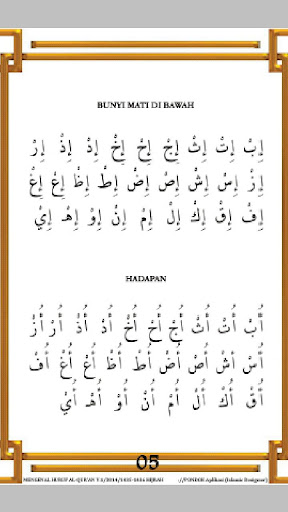 BUNYI MATI DI BAWAH
إِبْ إِتْ إِثْ إِجْ إِحْ إِخْ إِدْ إِذْ إِرْ
إِزْ إِسْ إِشْ إِصْ إِضْ إِطْ إِظْ إِعْ إِغْ
إِفْ إِقْ إِكْ إِلْ إِمْ إِنْ إِوْ إِهـْ إِيْ
HADAPAN
أُبْ أُتْ أُثْ أُجْ أُحْ أُخْ أُدْ أُذْ أُرْ أُزْ
أُسْ أُشْ أُصْ أُضْ أُطْ أُظْ أُعْ أُغْ أُفْ
أُقْ أُكْ أُلْ أُمْ أُنْ أُوْ أُهـْ أُيْ
05
MENGENAL HURUF AL-QUR'AN V 2/2014/1435-1436 HIJRAH ://PONDOS Aplikasi (Islamic Designer)